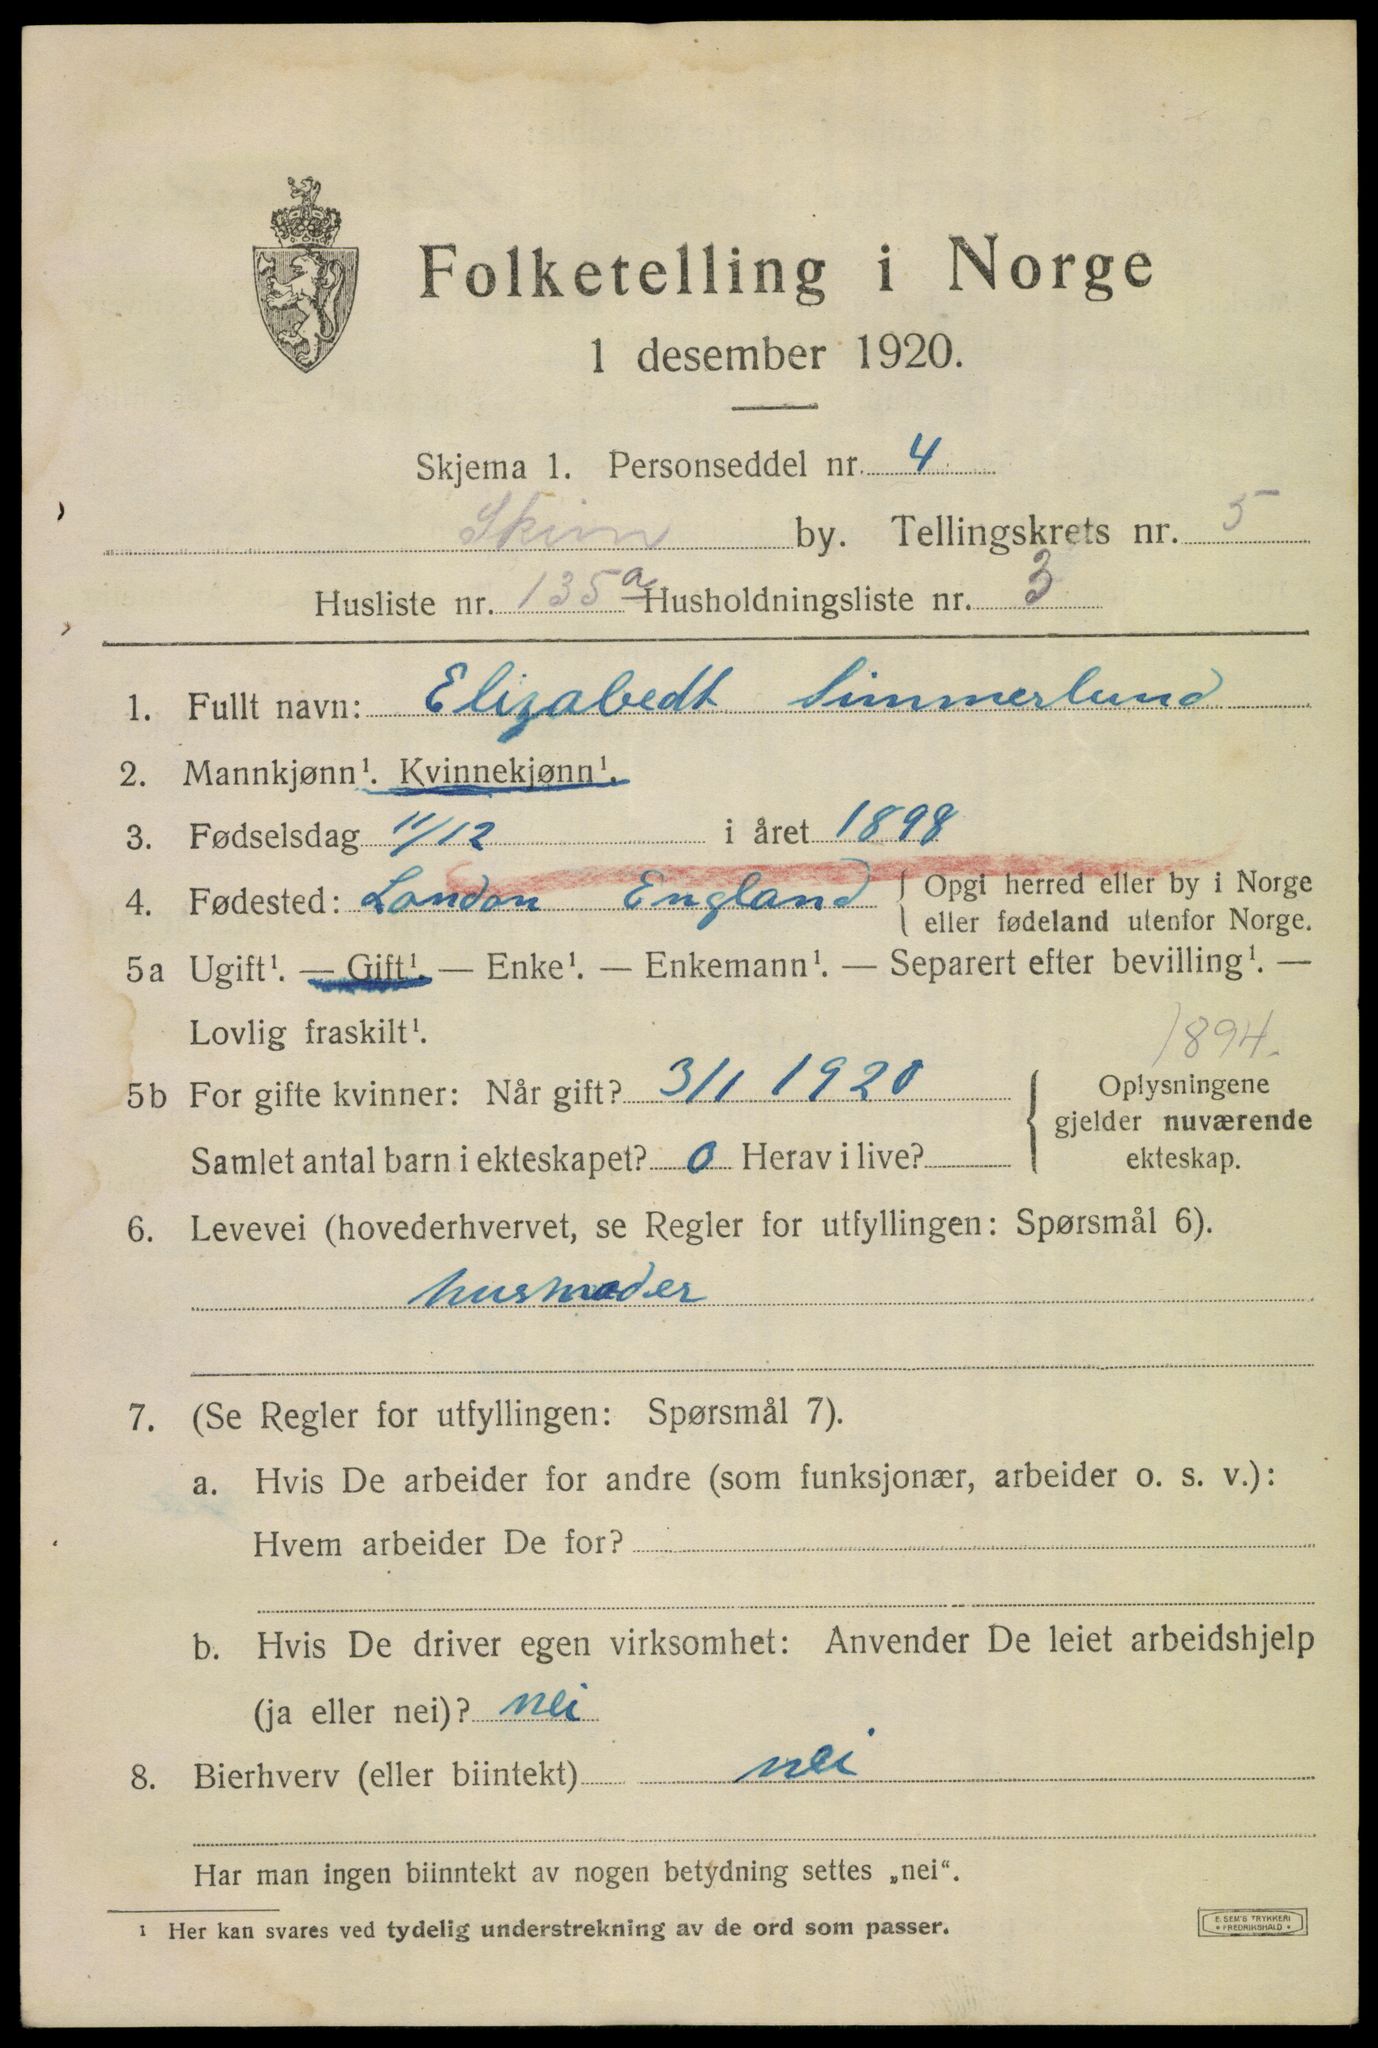 Folketelling i Norge
1 desember 1920.
Skjema 1. Personseddel nr. 4
Skien by. Tellingskrets nr. 5
Husliste nr. 135a Husholdningsliste nr. 3
1. Fullt navn: Elizabedt Simmerlund
2. Mannkjønn¹. Kvinnekjønn¹.
3. Fødselsdag 11/12 i året 1898
4. Fødested: London England { Opgi herred eller by i Norge
eller fødeland utenfor Norge.
5a Ugift¹. — Gift¹. — Enke¹. — Enkemann¹. — Separert efter bevilling¹. —
Lovlig fraskilt¹.
1894.
5b For gifte kvinner: Når gift? 3/1 1920
Samlet antal barn i ekteskapet? 0 Herav i live?
{ Oplysningene
gjelder nuværende
ekteskap.
6. Levevei (hovederhvervet, se Regler for utfyllingen: Spørsmål 6).
husmoder
7. (Se Regler for utfyllingen: Spørsmål 7).
a. Hvis De arbeider for andre (som funksjonær, arbeider o. s. v.):
Hvem arbeider De for?
b. Hvis De driver egen virksomhet: Anvender De leiet arbeidshjelp
(ja eller nei)? nei
8. Bierhverv (eller biintekt) nei
Har man ingen biinntekt av nogen betydning settes „nei“.
¹ Her kan svares ved tydelig understrekning av de ord som passer.
E. SEM'S TRYKKERI
FREDRIKSHALD